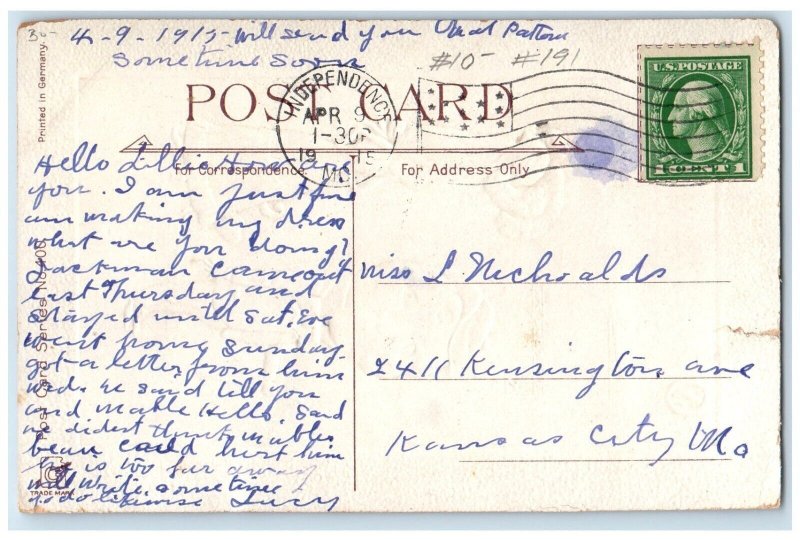 30-
4-9-1915-will send you that Pattern
Sometime soon
#10- #191
U.S. POSTAGE
1 CENT 1
INDEPENDENCE
APR 9
1-30P
1915
MO.
POST CARD
For Correspondence.
For Address Only.
Printed in Germany.
Post Card Series No. 400
TRADE MARK
Hello Lillie How are
you. I am just fine
am making my dress
what are you doing?
Jackman came out
last Thursday and
stayed until Sat. Eve
went home Sunday.
got a letter from him
Wed. he said tell you
and Mable Hello. Said
he didest think mables
beau could hurt him
he is too far away
will write sometime
do likewise Lucy
Miss L Nichoalds
2411 Kensington ave
Kansas City Mo